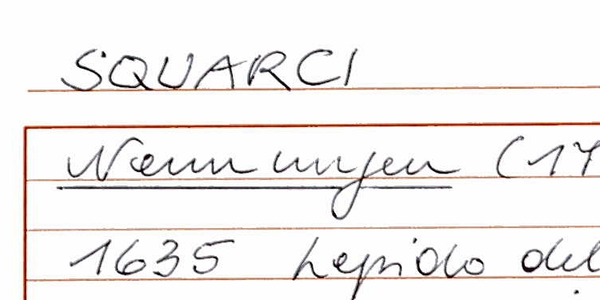 SQUARCI
Nennungen (17
1635 Lepido del